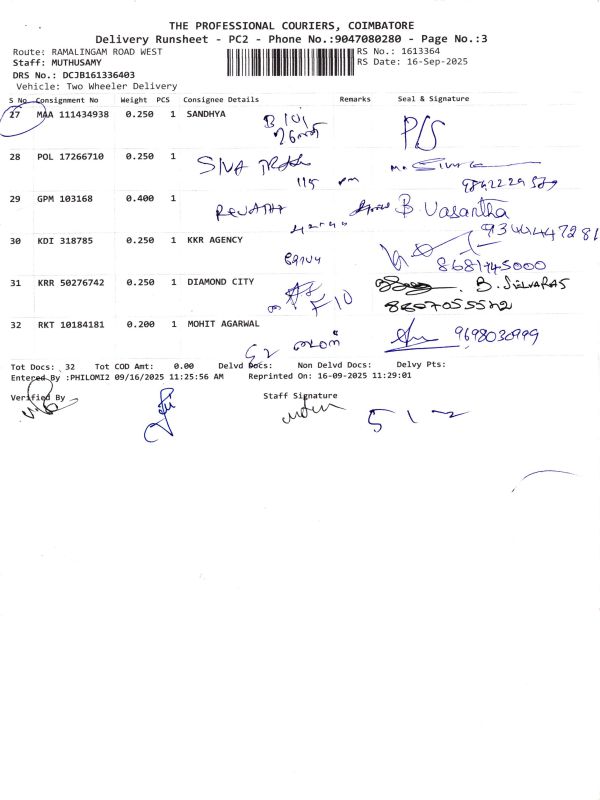 THE PROFESSIONAL COURIERS, COIMBATORE
Delivery Runsheet - PC2 - Phone No.:9047080280 - Page No.:3
Route: RAMALINGAM ROAD WEST
RS No.: 1613364
Staff: MUTHUSAMY
RS Date: 16-Sep-2025
DRS No.: DCJB161336403
Vehicle: Two Wheeler Delivery
S No Consignment No Weight PCS Consignee Details Remarks Seal & Signature
27 MAA 111434938 0.250 1 SANDHYA
P/S
28 POL 17266710 0.250 1
SIVA
29 GPM 103168 0.400 1
REVATHI
B Vasantha
9344447281
30 KDI 318785 0.250 1 KKR AGENCY
8681745000
31 KRR 50276742 0.250 1 DIAMOND CITY
F10
B. SELVARAS
32 RKT 10184181 0.200 1 MOHIT AGARWAL
9698030999
Tot Docs: 32 Tot COD Amt: 0.00 Delvd Docs: Non Delvd Docs: Delvy Pts:
Entered By :PHILOMI2 09/16/2025 11:25:56 AM Reprinted On: 16-09-2025 11:29:01
Verified By
Staff Signature